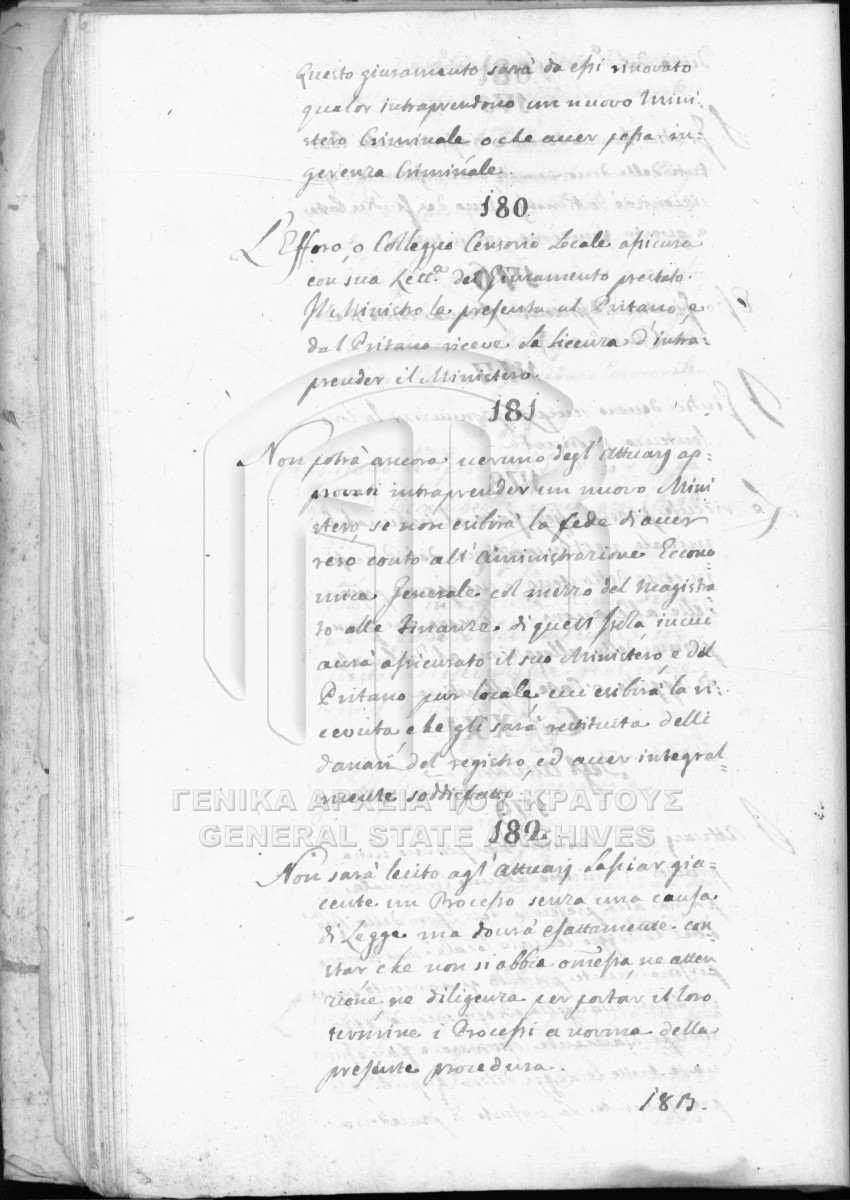 Questo giuramento sarà da essi rinovato
qualor intraprendono un nuovo Mini-
stero Criminale o che aver possa in-
gerenza Criminale.
180
L'Efforo, o Colleggio Censorio Locale assicura
con sua Lett.ª del Giuramento prestato.
Il Ministro la presenta al Pritano, e
dal Pritano riceve la licenza d'intra-
prender il Ministero.
181
Non potrà ancora veruno degl'Attuarj ap-
provati intraprender un nuovo Mini
stero, se non esibirà la fede di aver
reso conto all'Aministrazione Econo
mica Generale col mezzo del Magistra-
to alle Finanze di quell'Isola, in cui
avrà assicurato il suo Ministero, e del
Pritano pur locale, cui esibirà la ri-
cevuta, che gli sarà restituita delli
danari del registro, ed aver integral-
mente soddisfatto.
ΓΕΝΙΚΑ ΑΡΧΕΙΑ ΤΟΥ ΚΡΑΤΟΥΣ
GENERAL STATE ARCHIVES
182
Non sarà lecito agl'Attuarj lasciar gia-
cente un Processo senza una causa
di Legge, ma dovrà esattamente con
star che non si abbia omessa, ne atten-
zione, ne diligenza per portar il loro
termine i Processi a norma della
presente procedura.
183.